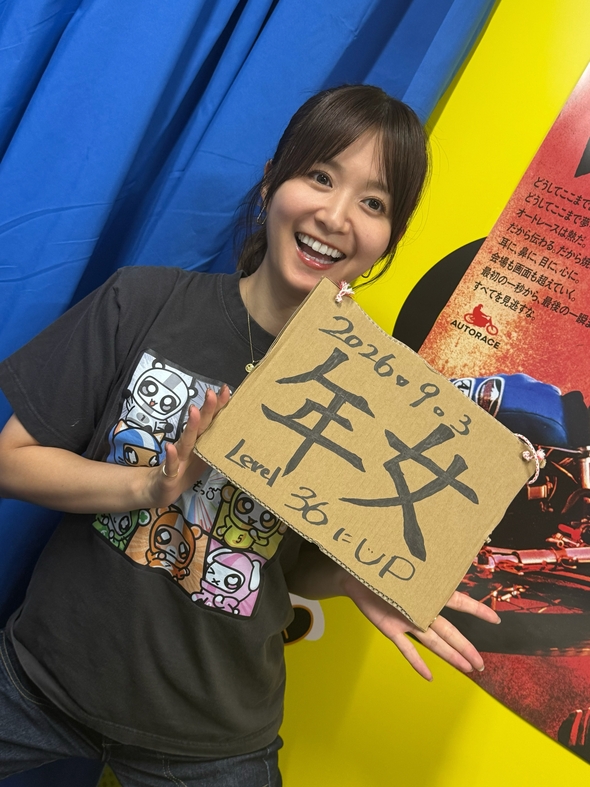 2026.9.3
年女
Level 36にUP
どうしてここまで
どうしてここまで夢
オートレースは熱だ。
だから伝わる。だから
耳に、鼻に、目に、心に。
会場も画面も超えていく。
最初の一秒から、最後の一瞬
すべてを見逃すな。
AUTORACE